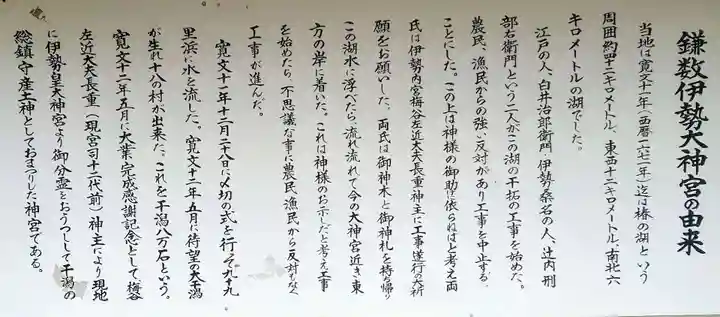 鎌数伊勢大神宮の由来
当地は寛文十一年(西暦一六七一年)迄は椿の湖という
周囲約四十二キロメートル、東西十二キロメートル、南北六
キロメートルの湖でした。
江戸の人、白井治郎衛門、伊勢桑名の人、辻内刑
部右衛門という二人がこの湖の干拓の工事を始めた。
農民、漁民からの強い反対があり工事を中止する
ことにした。この上は神様の御助に依らねばと考え両
氏は伊勢内宮梅谷左近大夫長重神主に工事遂行の大祈
願をお願いした。両氏は御神木と御神札を持ち帰り
この湖水に浮べたら、流れ流れて今の大神宮近き東
方の岸に着いた。これは神様のお示しだと考え工事
を始めたら、不思議な事に農民、漁民から反対もなく
工事が進んだ。
寛文十一年十二月二十八日に〆切の式を行って九十九
里浜に水を流した。寛文十二年五月に待望の大干潟
が生れ十八の村が出来た。これを干潟八万石という。
寛文十二年五月に大業完成感謝記念として、梅谷
左近大夫長重(現宮司十二代前)神主により現地
に伊勢皇大神宮より御分霊をおうつしして干潟の
総鎮守産土神としておまつりした神宮である。